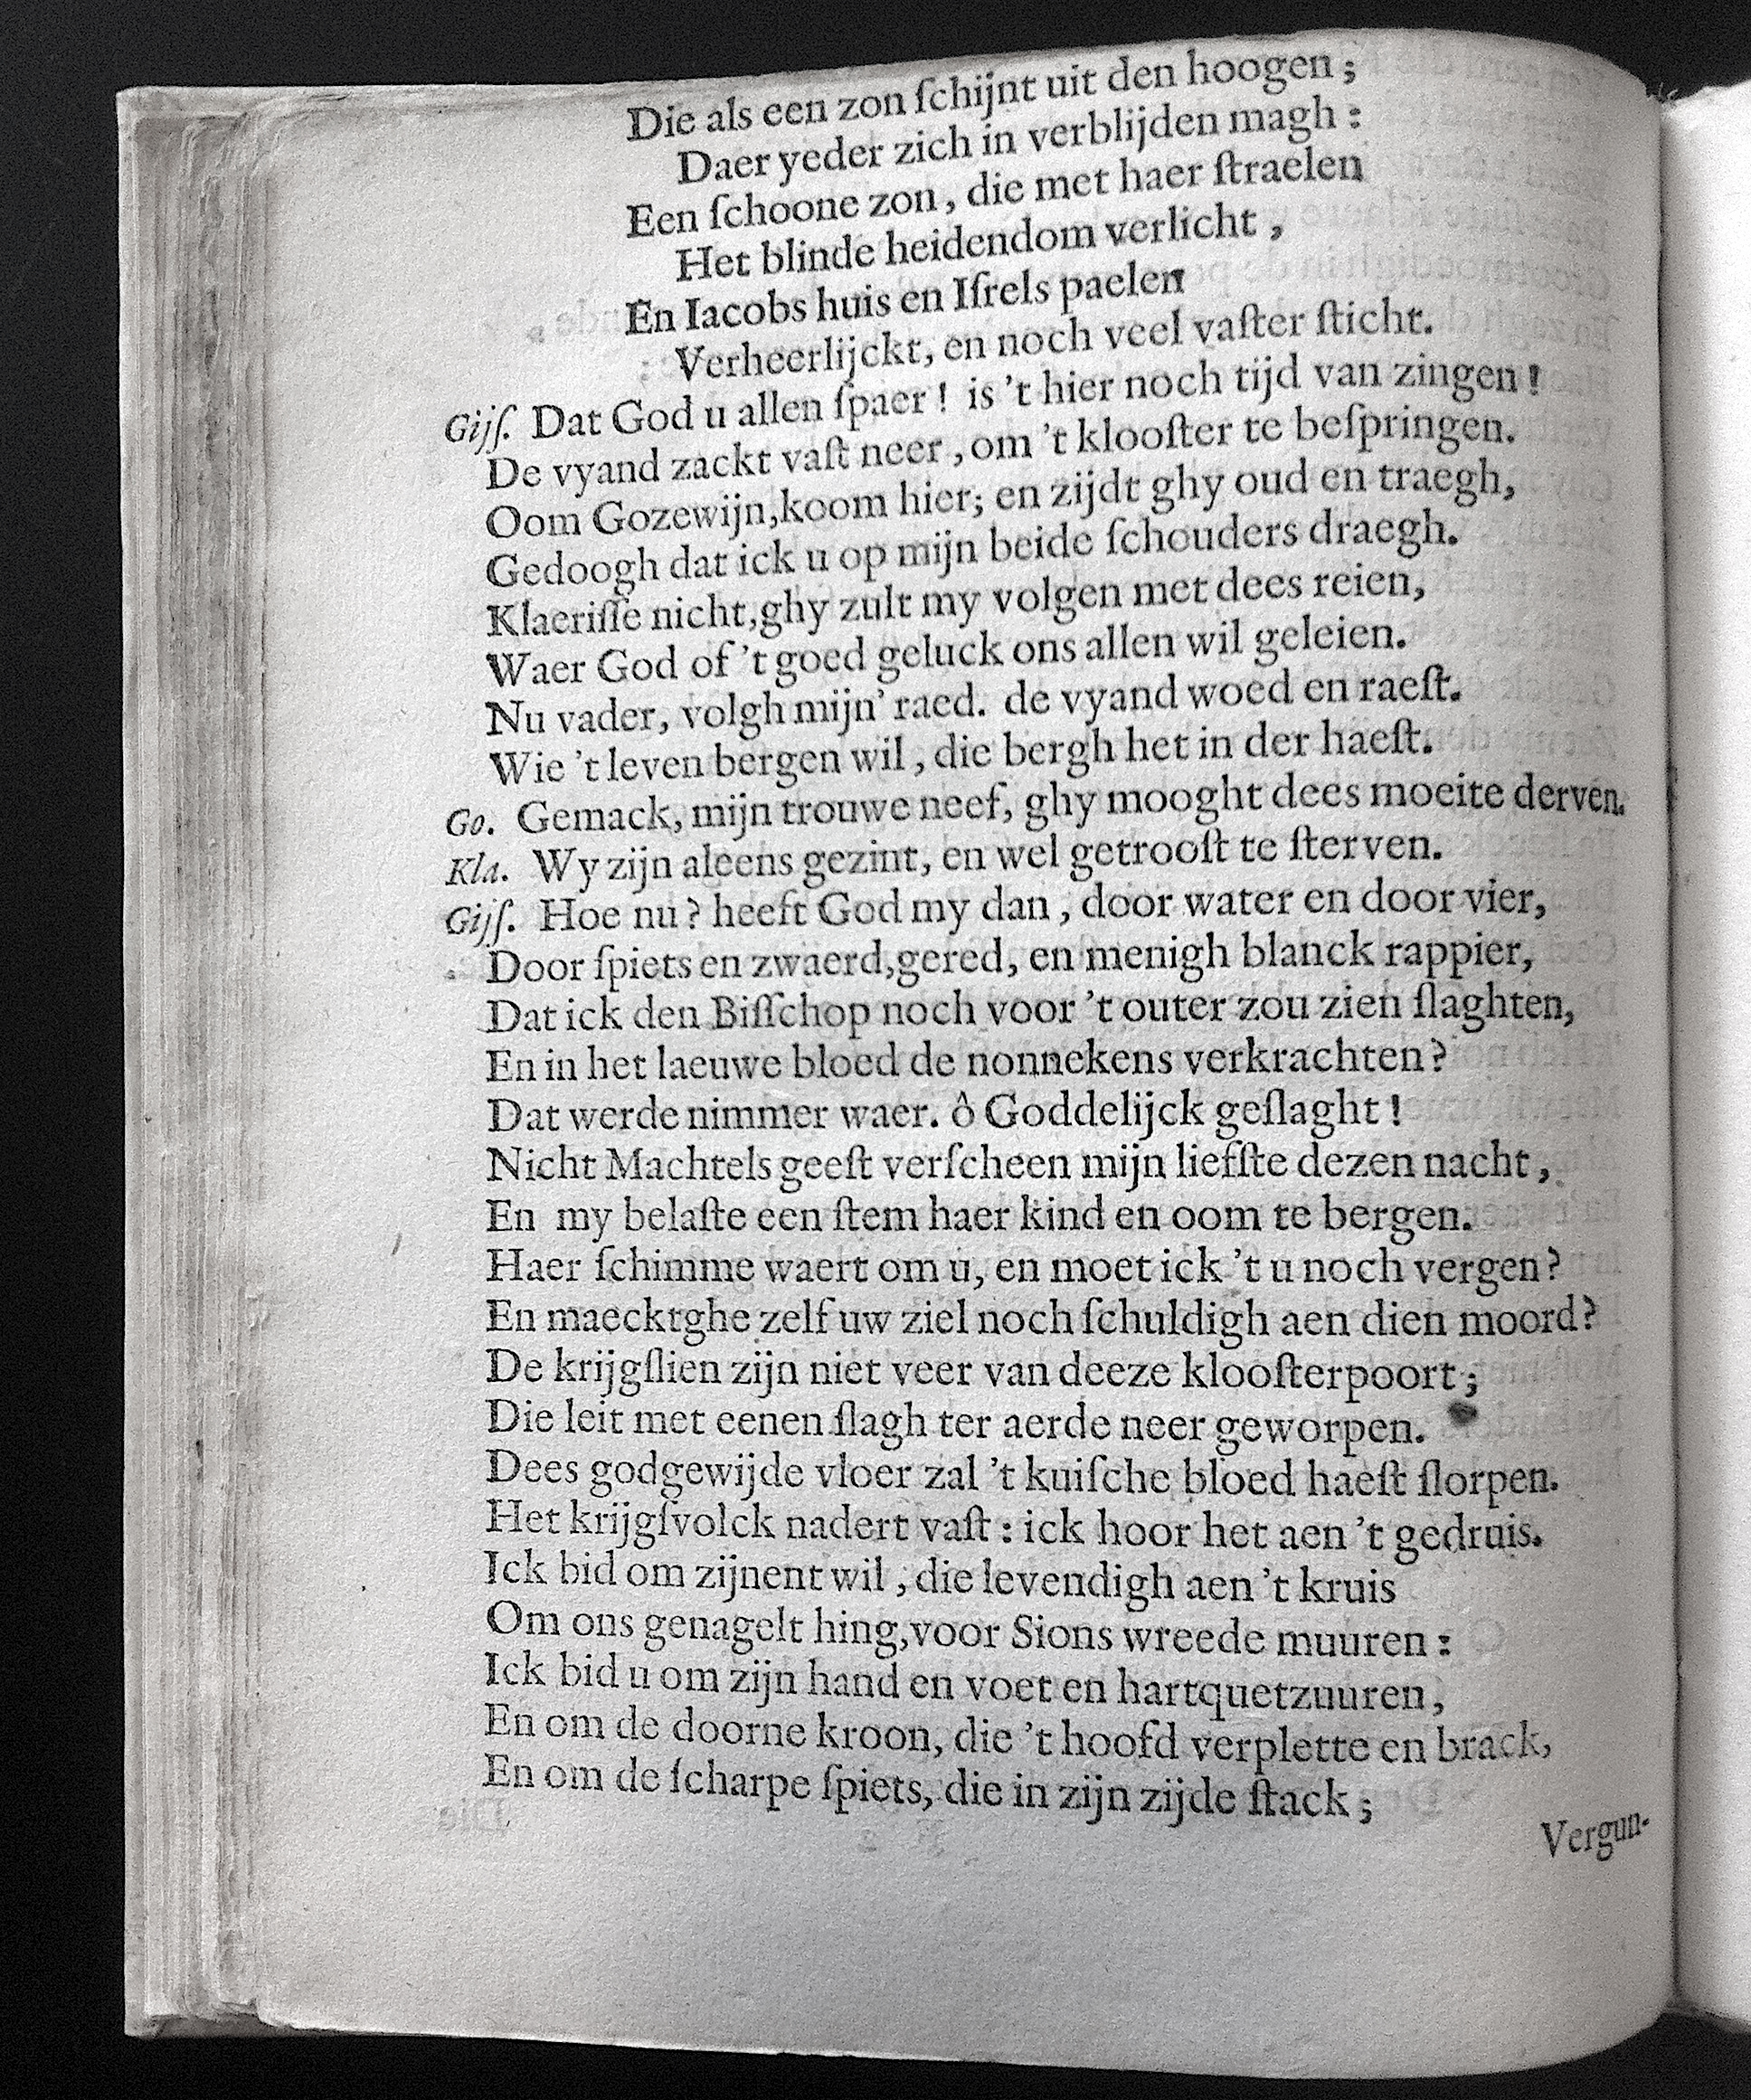 Die als een zon ſchijnt uit den hoogen;
Daer yeder zich in verblijden magh:
Een ſchoone zon, die met haer ſtraelen
Het blinde heidendom verlicht,
En Iacobs huis en Iſrels paelen
Verheerlijckt, en noch veel vaſter ſticht.
Gijſ. Dat God u allen ſpaer! is 't hier noch tijd van zingen!
De vyand zackt vaſt neer, om 't klooſter te beſpringen.
Oom Gozewijn, koom hier; en zijdt ghy oud en traegh,
Gedoogh dat ick u op mijn beide ſchouders draegh.
Klaeriſſe nicht, ghy zult my volgen met dees reien,
Waer God of 't goed geluck ons allen wil geleien.
Nu vader, volgh mijn' raed. de vyand woed en raeſt.
Wie 't leven bergen wil, die bergh het in der haeſt.
Go. Gemack, mijn trouwe neef, ghy mooght dees moeite derven.
Kla. Wy zijn aleens gezint, en wel getrooſt te ſterven.
Gijſ. Hoe nu? heeft God my dan, door water en door vier,
Door ſpiets en zwaerd, gered, en menigh blanck rappier,
Dat ick den Biſſchop noch voor 't outer zou zien ſlaghten,
En in het laeuwe bloed de nonnekens verkrachten?
Dat werde nimmer waer. ô Goddelijck geſlaght!
Nicht Machtels geeſt verſcheen mijn liefſte dezen nacht,
En my belaſte een ſtem haer kind en oom te bergen.
Haer ſchimme waert om u, en moet ick 't u noch vergen?
En maecktghe zelf uw ziel noch ſchuldigh aen dien moord?
De krijgſlien zijn niet veer van deeze klooſterpoort;
Die leit met eenen ſlagh ter aerde neer geworpen.
Dees godgewijde vloer zal 't kuiſche bloed haeſt ſlorpen.
Het krijgſvolck nadert vaſt: ick hoor het aen 't gedruis.
Ick bid om zijnent wil, die levendigh aen 't kruis
Om ons genagelt hing, voor Sions wreede muuren:
Ick bid u om zijn hand en voet en hartquetzuuren,
En om de doorne kroon, die 't hoofd verplette en brack,
En om de ſcharpe ſpiets, die in zijn zijde ſtack;
Vergun-